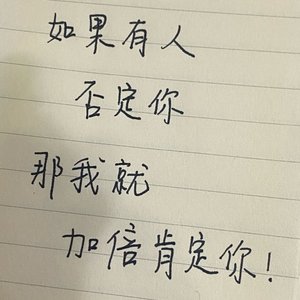 如果有人
否定你
那我就
加倍肯定你!